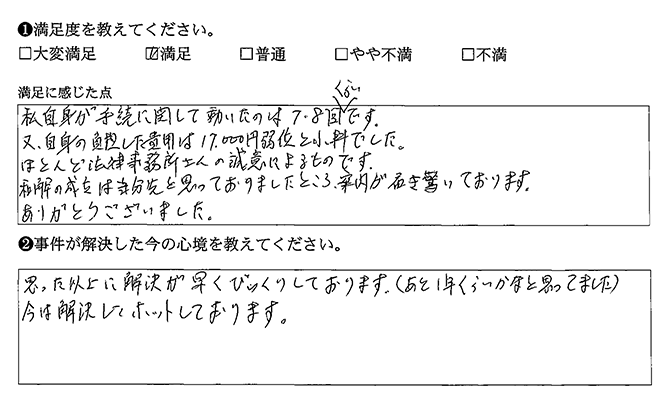 ❶満足度を教えてください。
□大変満足 ☑満足 □普通 □やや不満 □不満
満足に感じた点
私自身が手続に関して動いたのは7・8回くらいです。
又、自身の負担した費用は17,000円弱位と小料でした。
ほとんど法律事務所さんの誠意によるものです。
和解の成立は当分先と思っておりましたところ、案内が届き驚いております。
ありがとうございました。
❷事件が解決した今の心境を教えてください。
思った以上に解決が早くびっくりしております。(あと1年くらいかなと思ってました)
今は解決してホットしております。